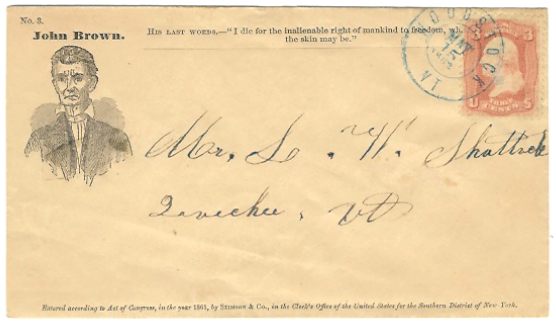 No. 3.
John Brown.
HIS LAST WORDS.—"I die for the inalienable right of mankind to freedom,
the skin may be."
WOODSTOCK
MAY
15
3
3
THREE
CENTS
U
S
Mr. L. H. Shattuck
Quechee, Vt
Entered according to Act of Congress, in the year 1861, by STIMSON & Co., in the Clerk's Office of the United States for the Southern District of New-York.